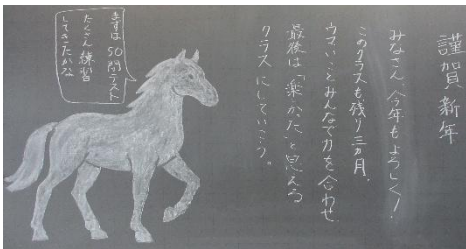 謹賀新年
みなさん、今年もよろしく!
このクラスも残り三カ月、
ウマいことみんなで力を合わせ
最後は「楽しかった」と思える
クラスにしていこう。
まずは50問テスト
たくさん練習
してきたかな